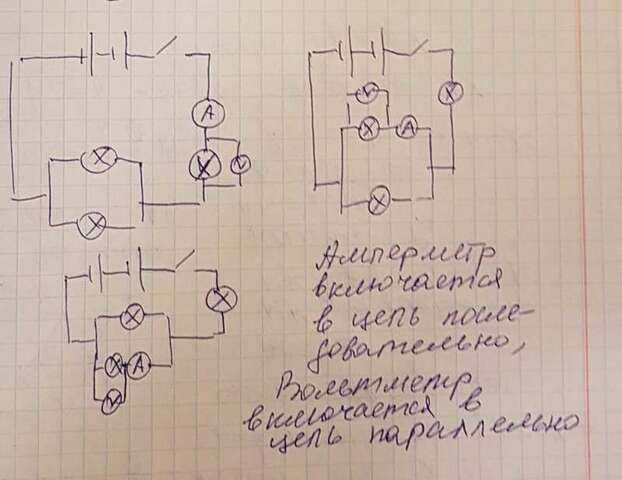 A
V
V
A
A
V
Амперметр
включается
в цепь после-
довательно,
Вольтметр
включается в
цепь параллельно